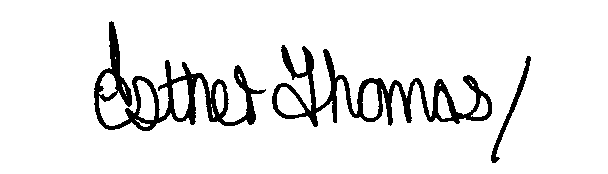 Esther Thomas/